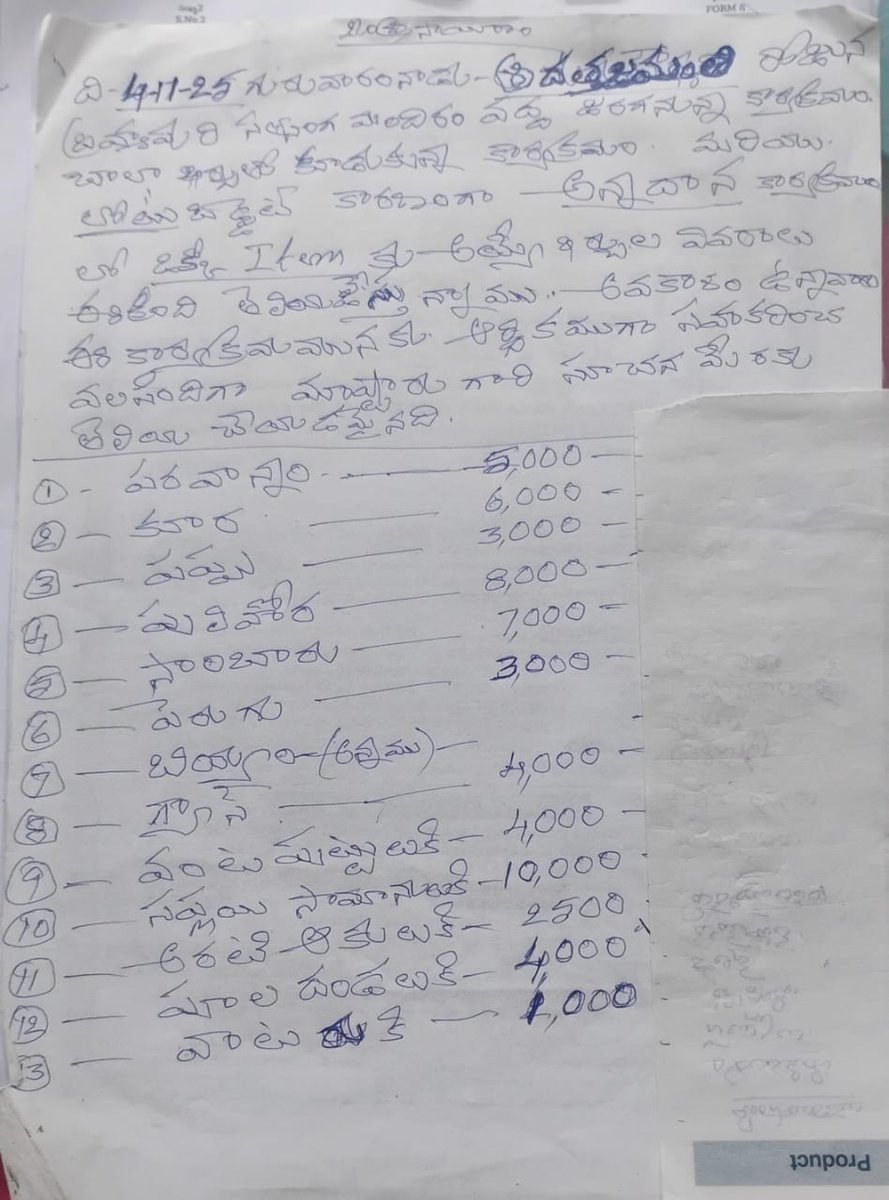 S.No.2
FORM 6
ఓం శ్రీ సాయిరాం
ది - 4-11-25 గురువారం నాడు - శ్రీ దత్త జయంతి రోజున
సత్సంగ మందిరం వద్ద జరగనున్న కార్యక్రమం
చాలా ఖర్చుతో కూడుకున్న కార్యక్రమం. మరియు.
లోయ బడ్జెట్ కారణంగా - అన్నదాన కార్యక్రమం
లో ఒక్కో Item కు - అయ్యే ఖర్చుల వివరాలు
ఈ క్రింది తెలియజేస్తున్నాము. - అవకాశం ఉన్నవారు
ఈ కార్యక్రమమునకు ఆర్థికముగా సహకరించ
వలసిందిగా మాష్టారు గారి సూచన మేరకు
తెలియ చేయడమైనది.
① - పరవాన్నం - 5,000 -
② - కూర - 6,000 -
③ - పప్పు - 3,000 -
④ - పులిహోర - 8,000 -
⑤ - సాంబారు - 7,000 -
⑥ - పెరుగు - 3,000 -
⑦ - బియ్యం - (అన్నము) -
⑧ - గ్యాస్ - 4,000 -
⑨ - వంట మట్టిలుకి - 4,000 -
⑩ - సప్లయి సామానుకి - 10,000
⑪ - అరటి ఆకులుకి - 2500
⑫ - పూల దండలుకి - 4,000
13 - వాటర్ కి - 1,000
Product